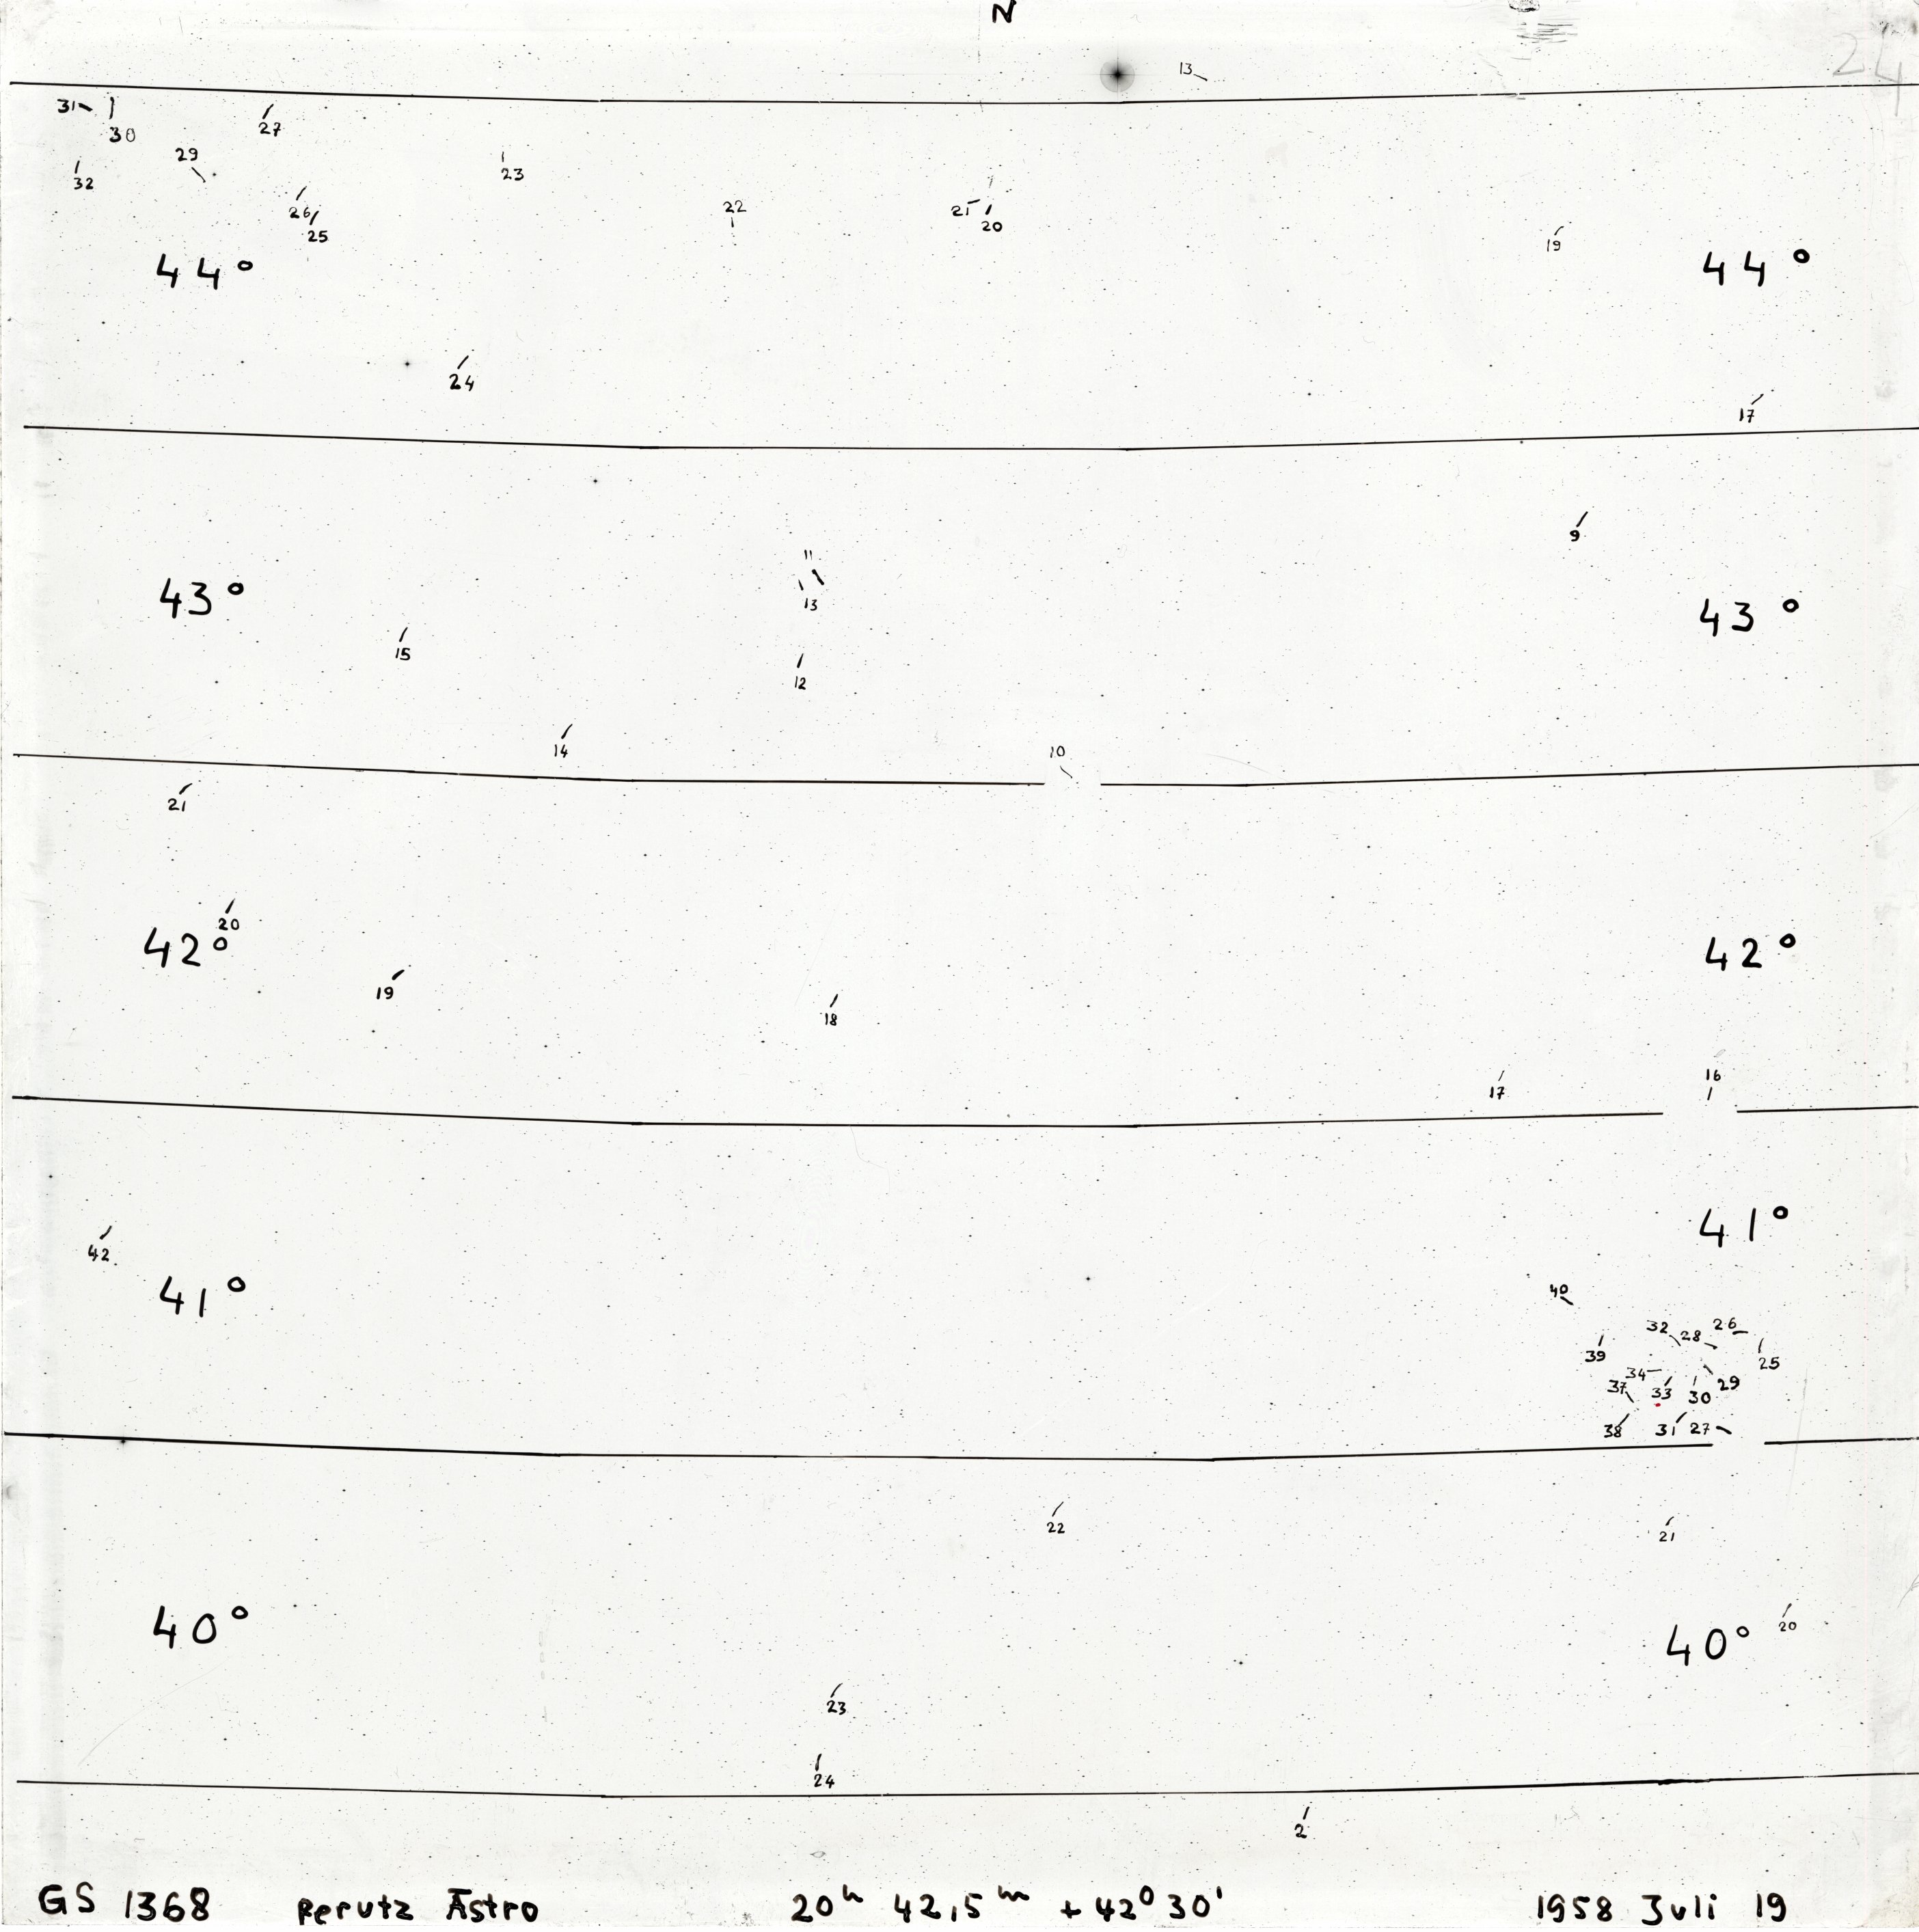 N
13
24
31
30
27
29
32
23
26
25
22
21
20
19
44° 44°
24
17
9
11
43° 43°
13
15
12
14
10
21
20
42° 42°
19
18
16
17
41°
42
41°
40
32 28 26
39
25
34
37
33
30
29
38
31
27
22
21
40° 40°
20
23
24
2
GS 1368 Perutz Astro 20h 42,5m +42° 30' 1958 Juli 19